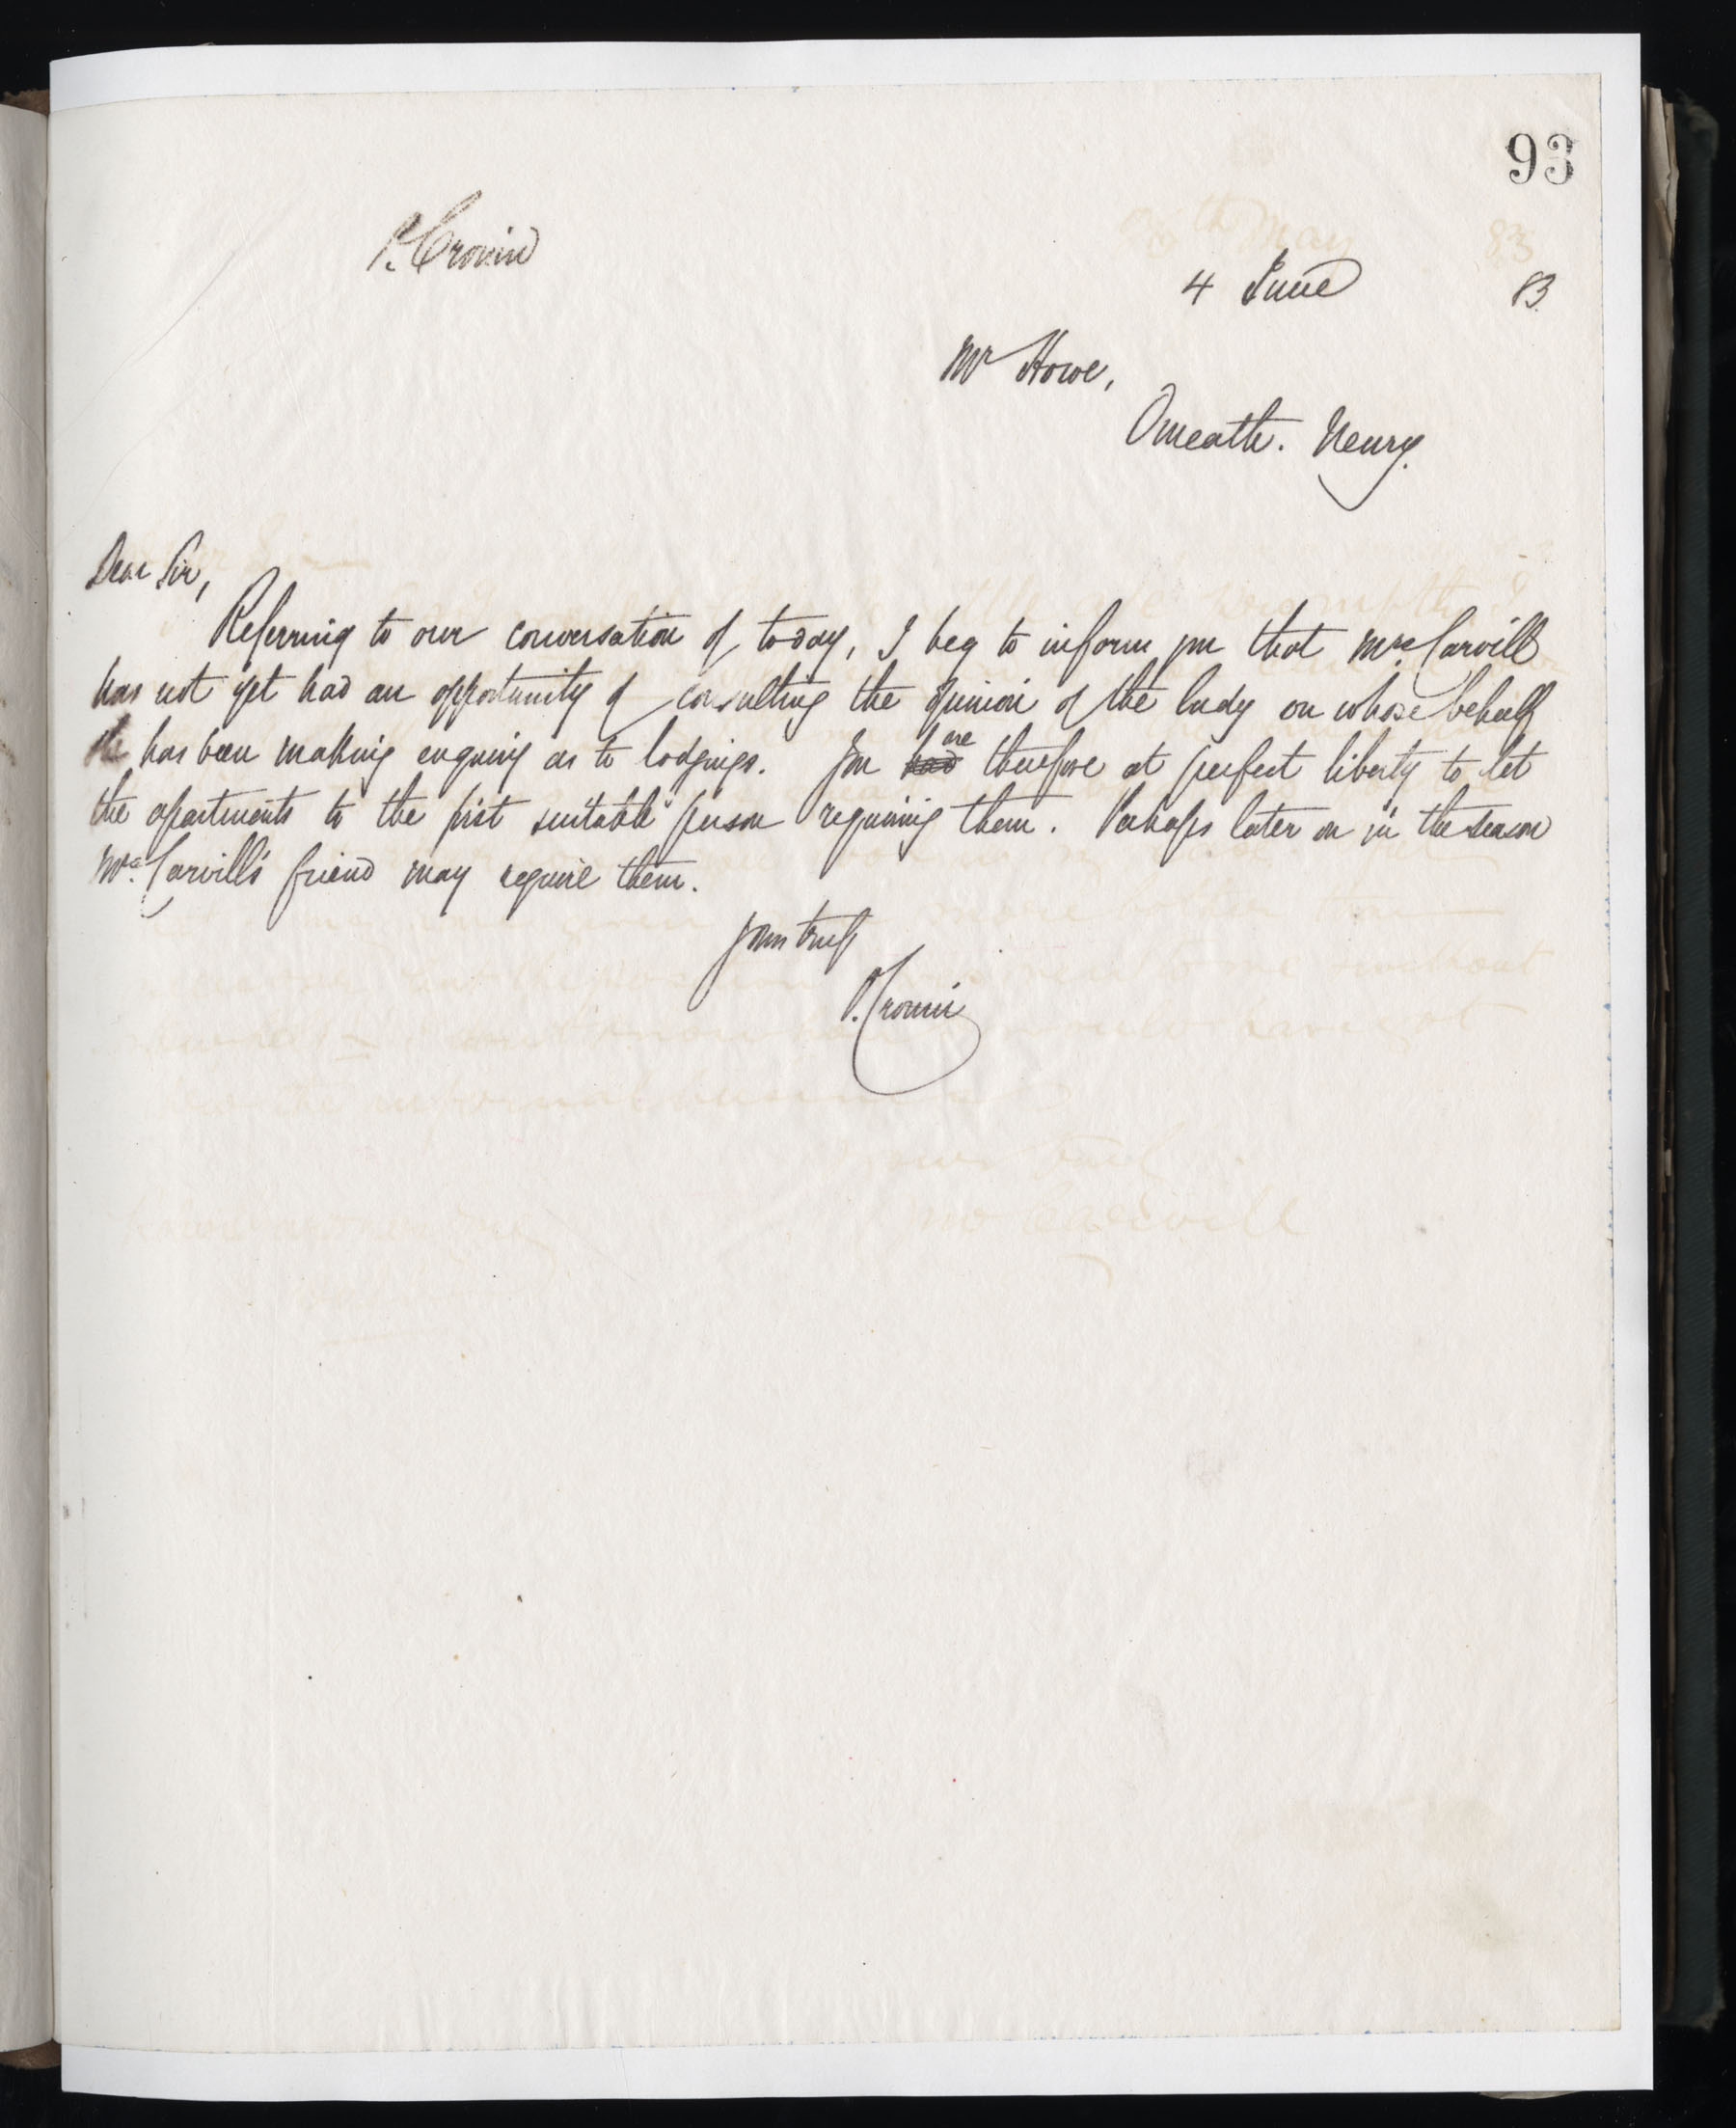 93
P. Cronin
4 June 83.
Mr Howe,
Omeath. Newry.
Dear Sir,
Referring to our conversation of today, I beg to inform you that Mrs Carvill
has not yet had an opportunity of consulting the opinion of the lady on whose behalf
she has been making enquiry as to lodgings. You had are therefore at perfect liberty to let
the apartments to the first suitable person requiring them. Perhaps later on in the season
Mrs. Carvill's friend may require them.
Yours truly
P. Cronin